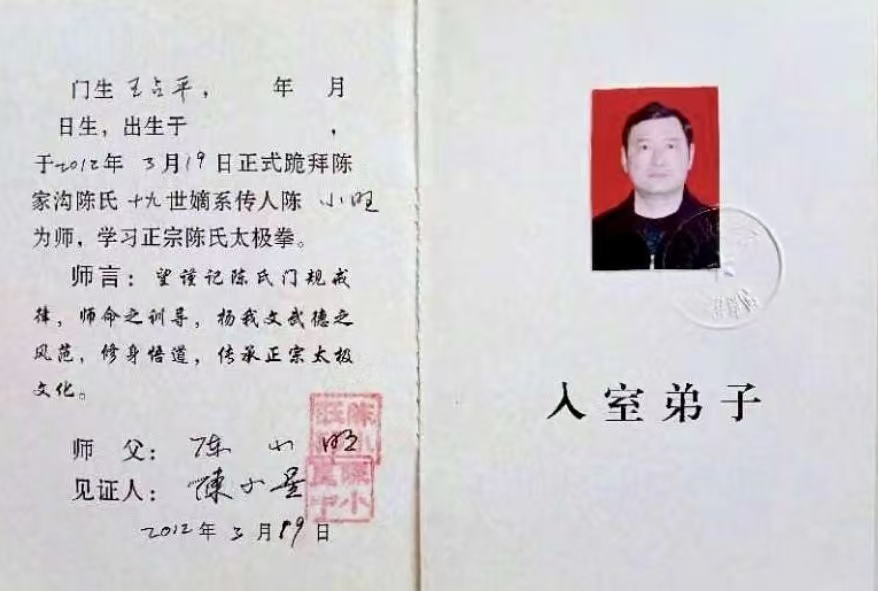 门生 王占平， 年 月
日生，出生于 ，
于2012年 3月19日正式跪拜陈
家沟陈氏 十九世嫡系传人陈 小旺
为师，学习正宗陈氏太极拳。
师言：望谨记陈氏门规戒
律，师命之训导，扬我文武德之
风范，修身悟道，传承正宗太极
文化。
师 父： 陈小旺
见证人： 陳小星
2012年3月19日
入室弟子